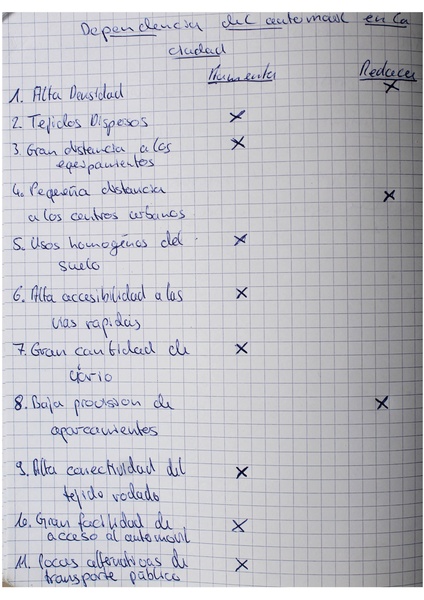 Dependencia del automovil en la
ciudad
Aumenta Reduce
1. Alta Densidad X
2. Tejidos Dispesos X
3. Gran distancia a los X
equipamientos
4. Pequeña distancia X
a los centros urbanos
5. Usos homogénos del X
suelo
6. Alta accesibilidad a las X
vías rapidas
7. Gran cantidad de X
8. Baja provision de X
aparcamientos
9. Alta conectividad del X
tejido rodado
10. Gran facilidad de X
acceso al automovil
11. Pocas alternativas de X
transporte público